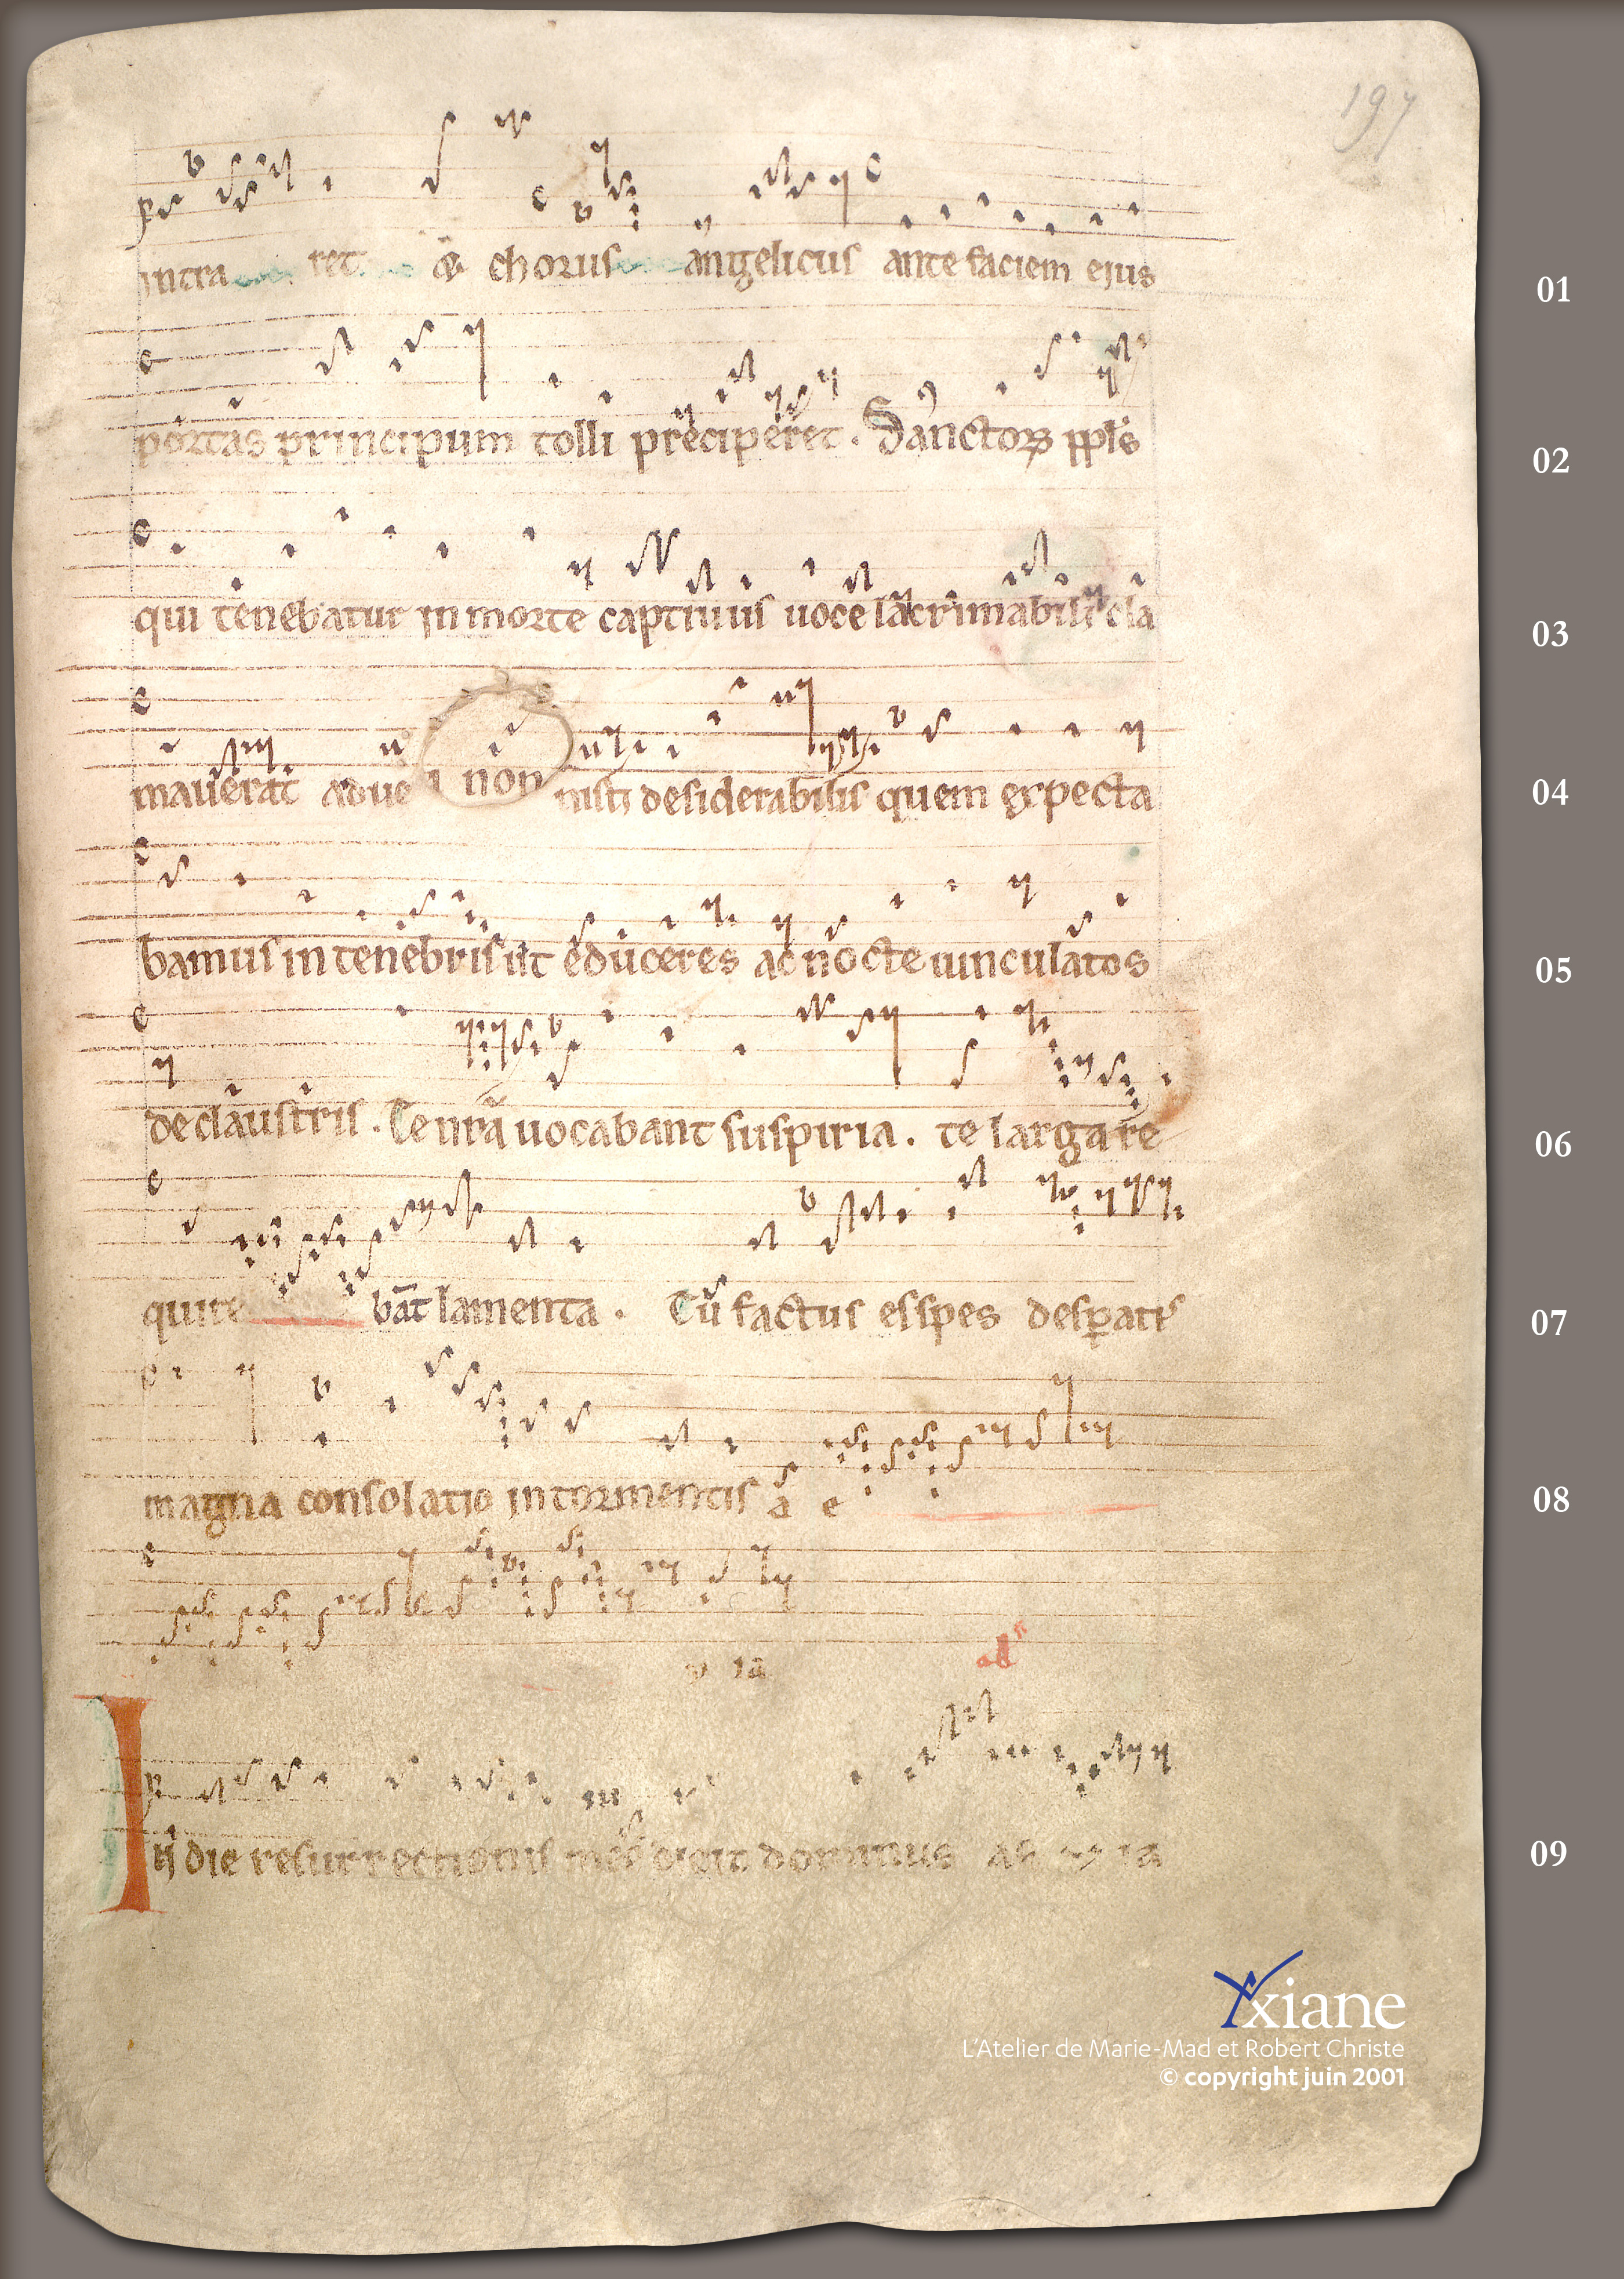 197
intra ret & chorus angelicus ante faciem ejus
01
portas principum tolli preciperet. Sanctorꝝ ppl̄s
02
qui tenebatur in morte captiuus uoce lacrimabili cla
03
mauerat adue non nisti desiderabilis quem expecta
04
bamus in tenebris ut educeres ac nocte uinculatos
05
de claustris. Te nr̄a uocabant suspiria. te larga re
06
quire bāt lamenta. Tu factus es spes desꝑatis
07
magna consolatio in tormentis a e
08
v ia
In die resurrectionis mee dicit dominus ae v ia
09
Yxiane
L'Atelier de Marie-Mad et Robert Christe
© copyright juin 2001